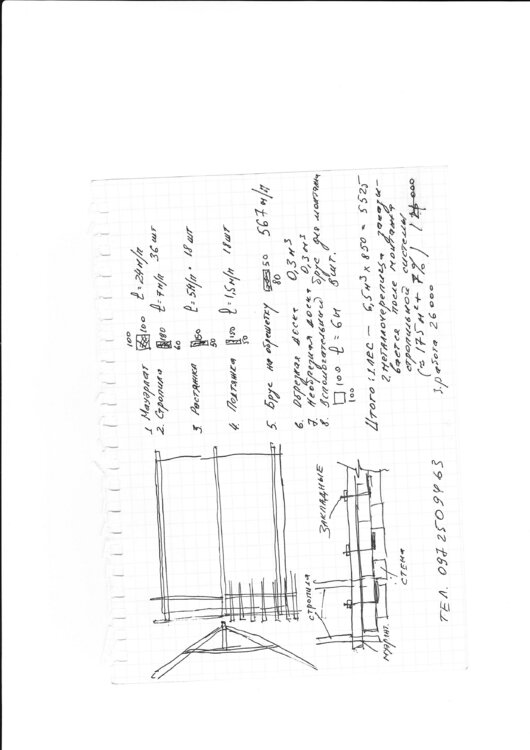 1 Мауэрлат 100 100 ℓ=24 м/п
2. Стропила 180 60 ℓ=7м/п 36 шт
3. Растяжка 150 50 ℓ=5м/п 18 шт
4. Подтяжка 100 50 ℓ=1,5м/п 18 шт
5. Брус на обрешетку 50 80 567 м/п
6. Обрезная доска 0,3 м³
7. Необрезная доска 0,3 м³
8. Вспомогательный брус для монтажа
100 100 ℓ=6м 8 шт.
Итого: 1. Лес – 6,5м³ х 850 = 5525
2. Металлочерепица
вается после монтажа
стропильной системы
(≈175м² + 7%)
3. работа 26000
ЗАКЛАДНЫЕ
СТРОПИЛА
СТЕНА
ТЕЛ. 0972509463